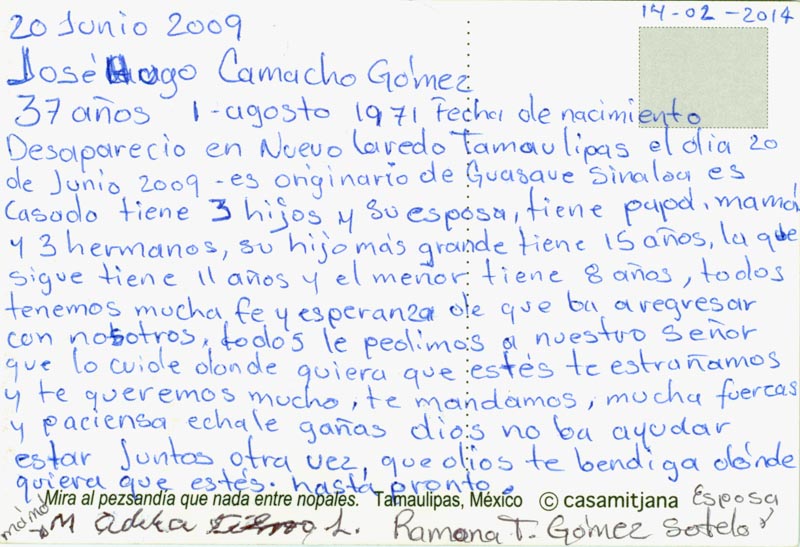 14-02-2014
20 Junio 2009
José Hugo Camacho Gómez
37 años 1-agosto 1971 Fecha de nacimiento
Desaparecio en Nuevo Laredo Tamaulipas el dia 20
de Junio 2009 - es originario de Guasave Sinaloa es
Casado tiene 3 hijos y su esposa, tiene papá, mamá
y 3 hermanos, su hijo más grande tiene 15 años, la que
sigue tiene 11 años y el menor tiene 8 años, todos
tenemos mucha fe y esperanza de que ba a regresar
con nosotros, todos le pedimos a nuestro señor
que lo cuide donde quiera que estés te estrañamos
y te queremos mucho, te mandamos, mucha fuercas
y paciensa echale gañas dios no ba ayudar
estar Juntos otra vez, que dios te bendiga dónde
quiera que estés. hasta pronto.
Mira al pezsandía que nada entre nopales. Tamaulipas, México © casamitjana
Esposa
mamá
M L. Ramona T. Gómez Sotelo